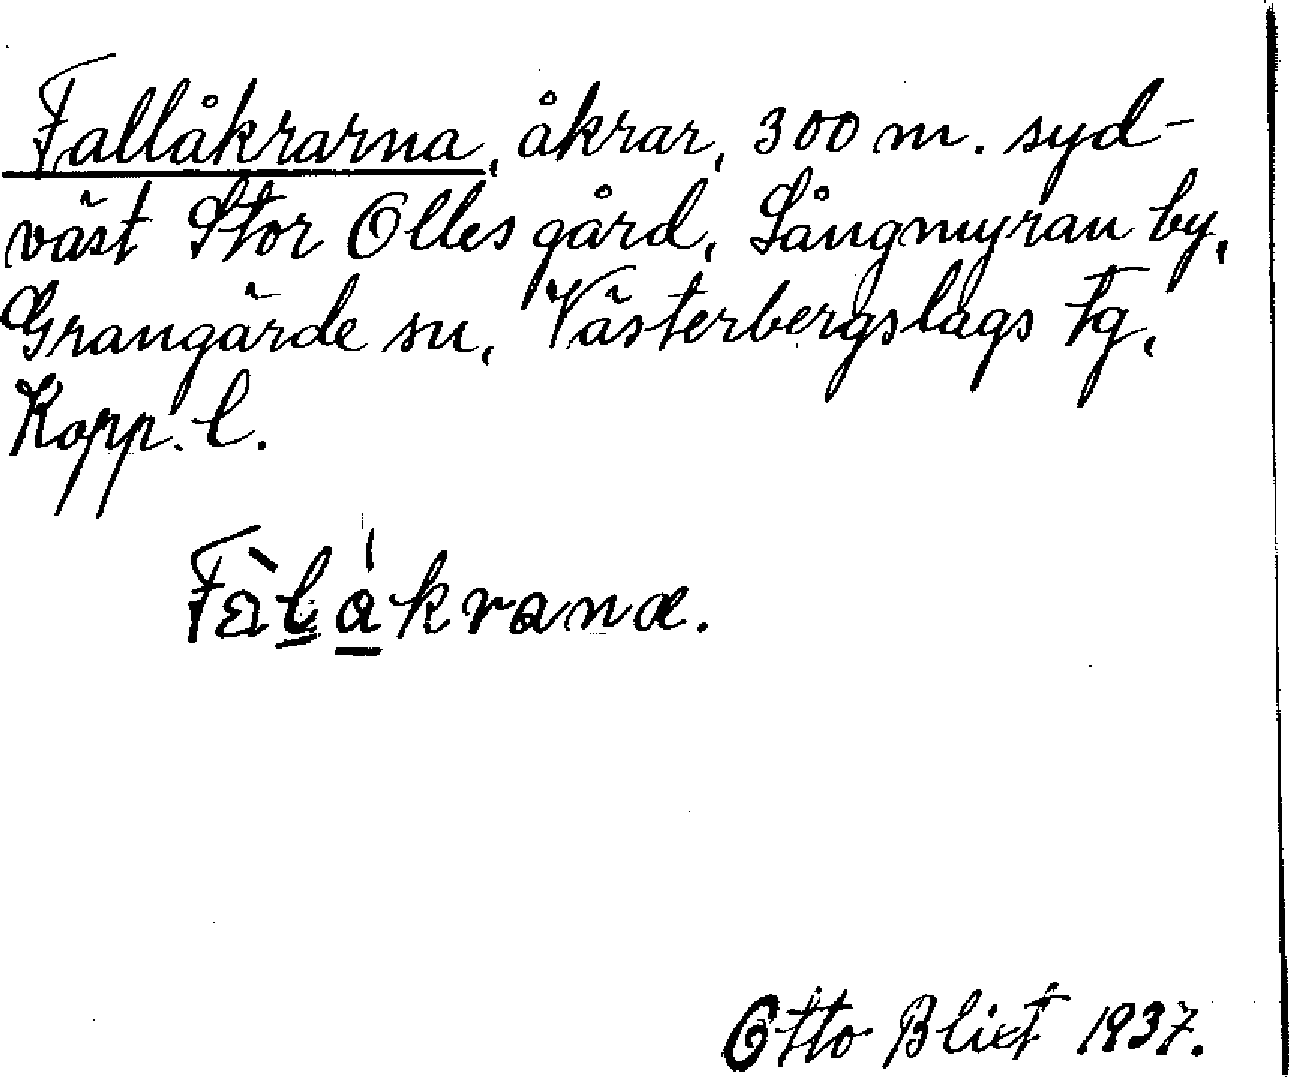 Fallåkrarna, åkrar, 300 m. syd-
väst Stor Olles gård, Långmyran by,
Grangärde sn, Västerbergslags Fg,
Kopp. l.
Fàlåkrana.
Otto Blixt 1937.